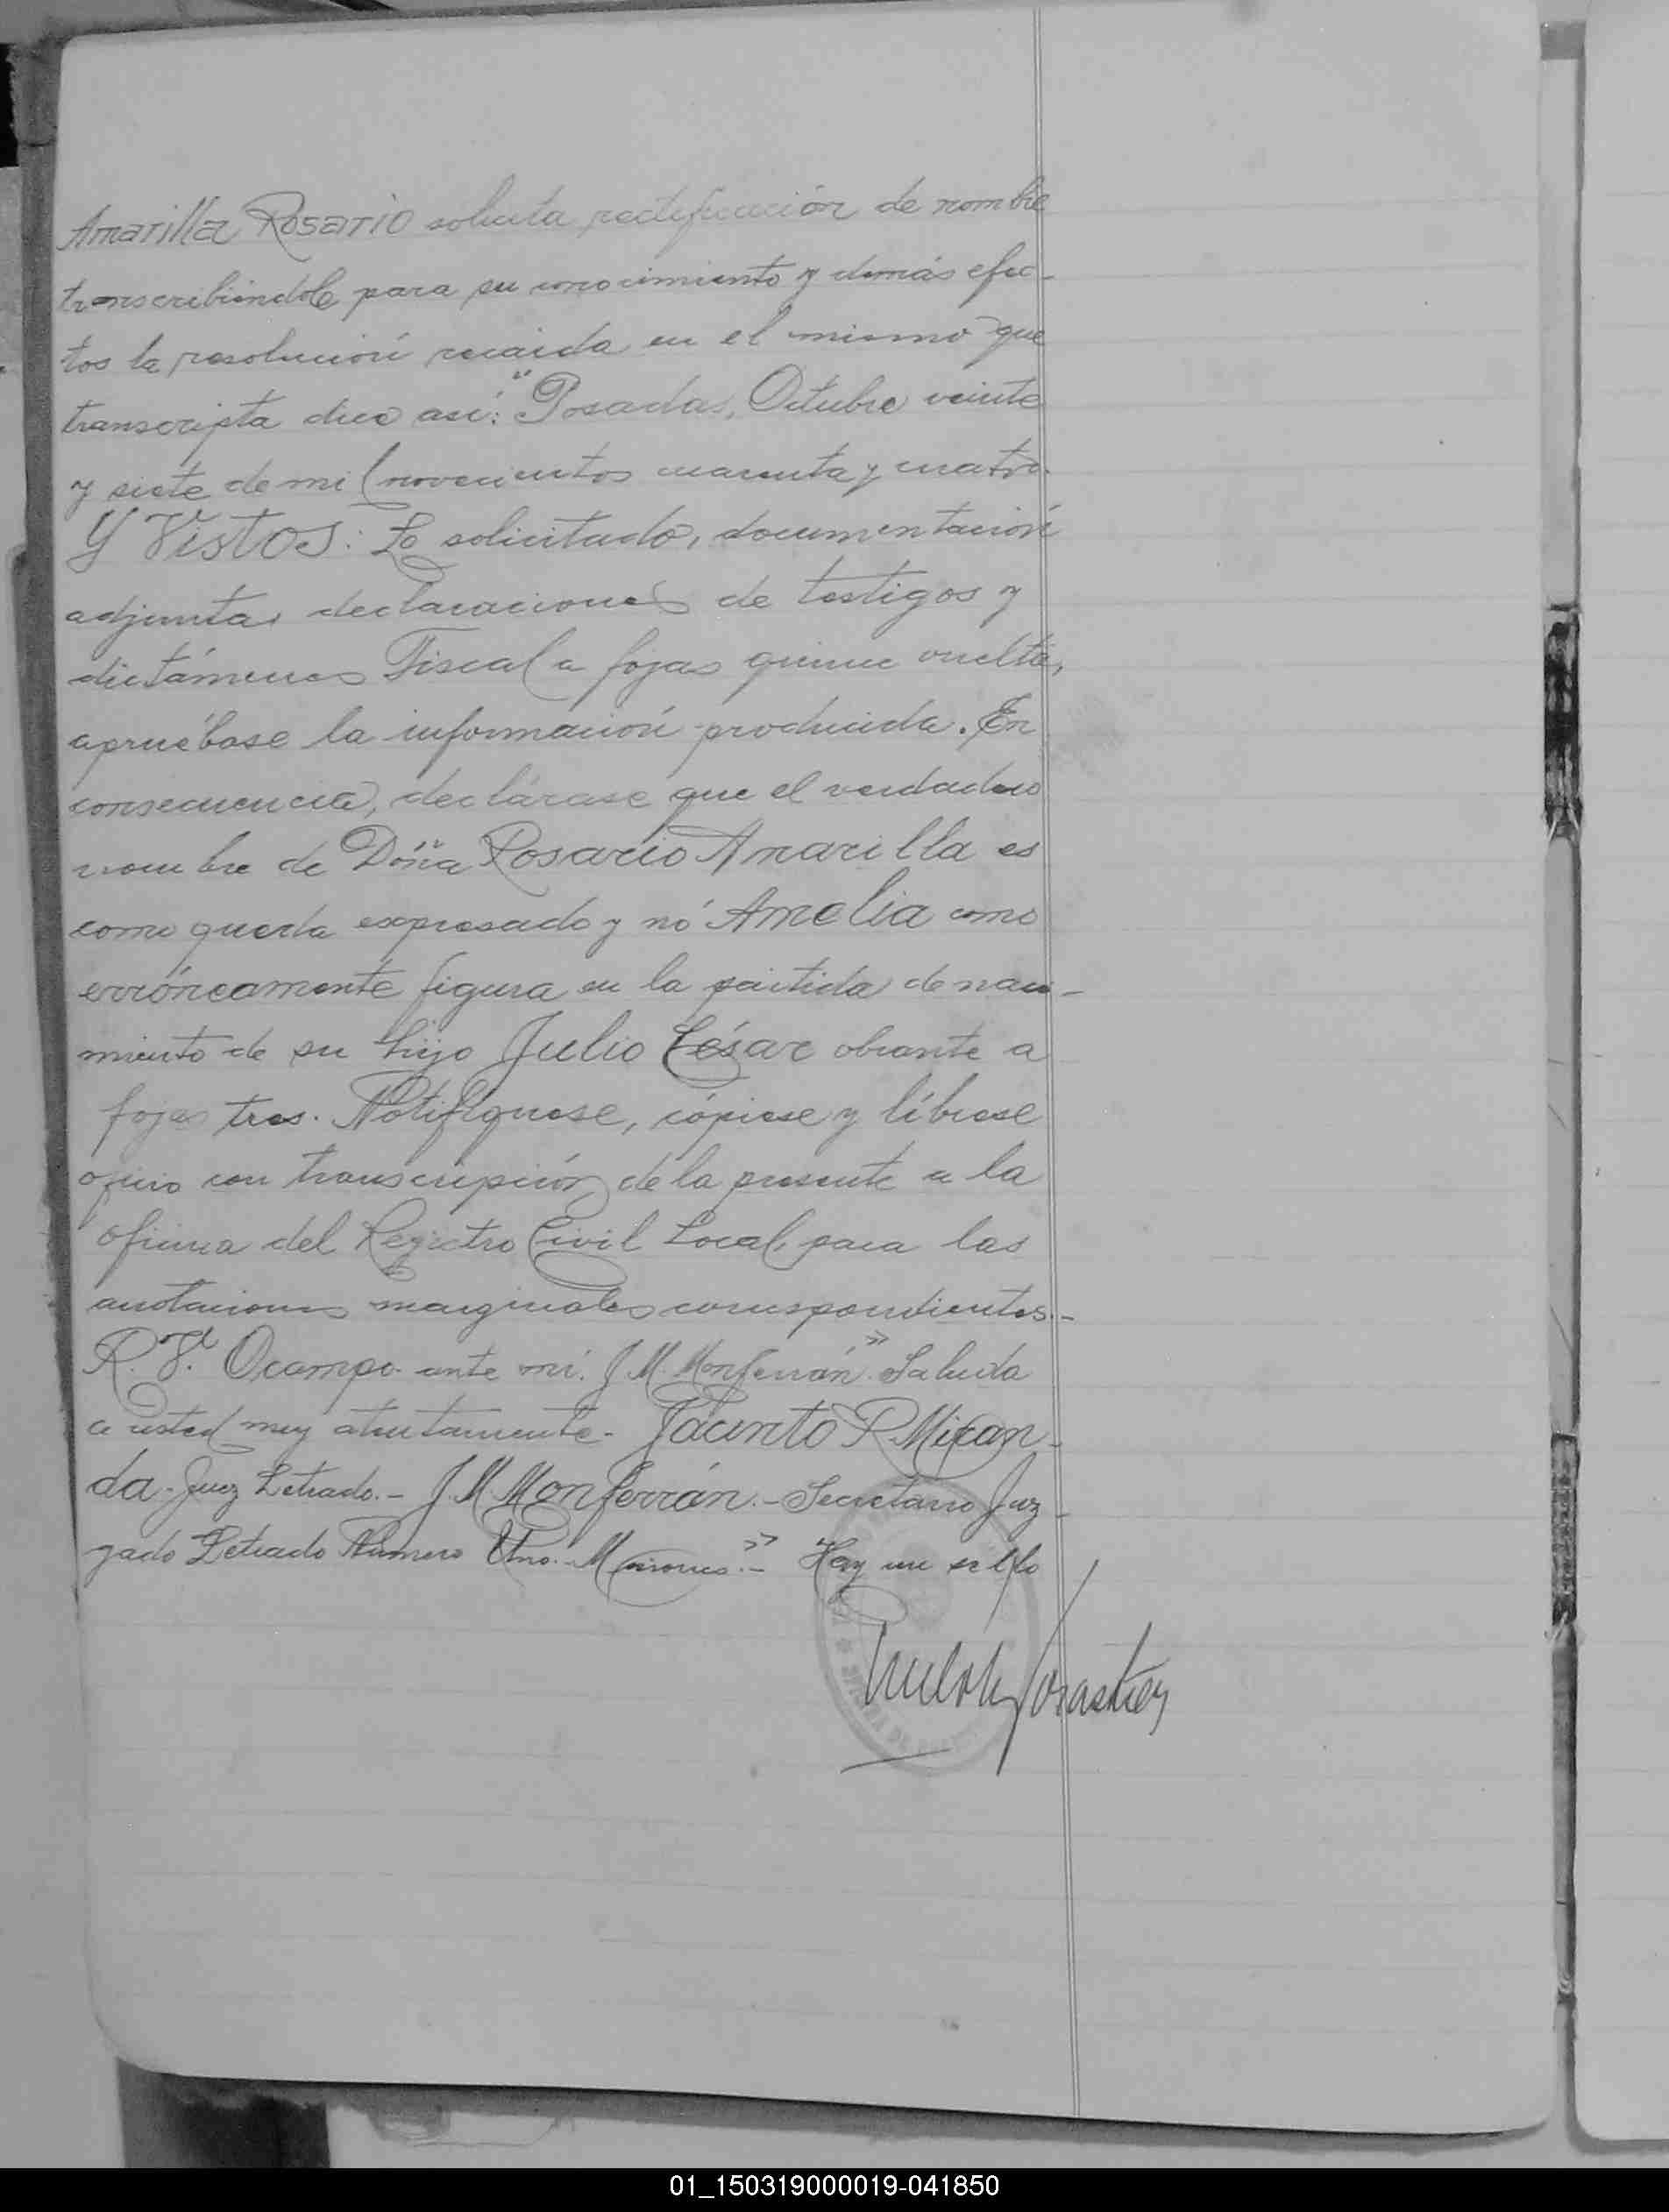 Amarilla Rosario solicita rectificación de nombre
transcribiéndole para su conocimiento y demás efec-
tos la resolución recaida en el mismo que
transcripta dice así: "Posadas, Octubre veinte
y siete de mil novecientos cuarenta y cuatro.
Y Vistos: Lo solicitado, documentación
adjunta, declaraciones de testigos y
dictámenes Fiscal a fojas quince vuelta,
apruébase la información producida. En
consecuencia, declárase que el verdadero
nombre de Doña Rosario Amarilla es
como queda expresado y nó Amelia como
erróneamente figura en la partida de naci-
miento de su hijo Julio César obrante a
fojas tres. Notifíquese, cópiese y líbrese
oficio con transcripción de la presente a la
oficina del Registro Civil Local, para las
anotaciones marginales correspondientes.-
R. V. Ocampo. ante mí. J. M. Monferrán." Saluda
a usted muy atentamente. Jacinto R. Miran-
da. Juez Letrado.- J. M. Monferrán.- Secretario Juz-
gado Letrado Número Uno. Misiones."- Hay un sello
01_150319000019-041850